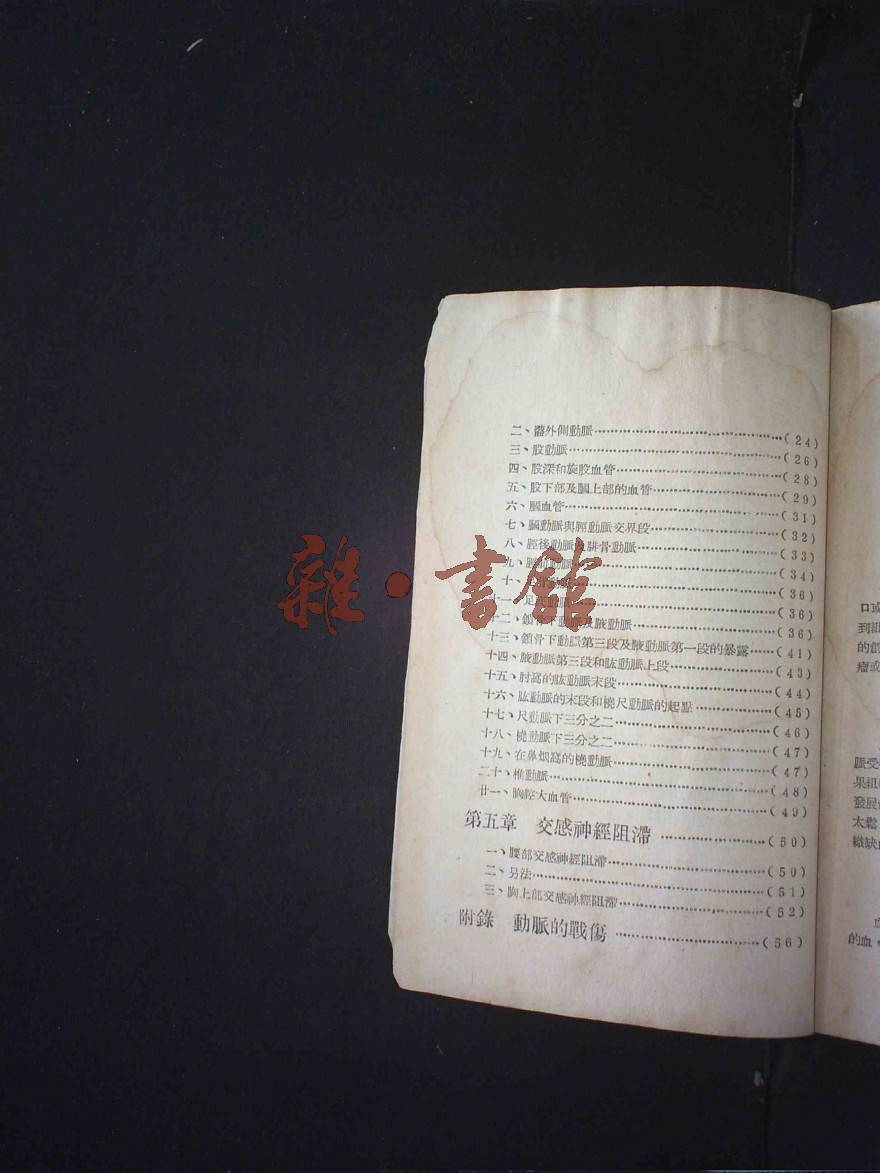 二、髂外側動脈……(24)
三、股動脈……(26)
四、股深和旋股血管……(28)
五、股下部及膕上部的血管……(29)
六、膕血管……(31)
七、膕動脈與脛動脈交界段……(32)
八、脛後動脈及腓骨動脈……(33)
九、脛前動脈……(34)
十、動脈……(36)
十一、足動脈……(36)
十二、鎖骨下動脈及腋動脈……(36)
十三、鎖骨下動脈第三段及腋動脈第一段的暴露……(41)
十四、腋動脈第三段和肱動脈上段……(43)
十五、肘窩的肱動脈末段……(44)
十六、肱動脈的末段和橈尺動脈的起點……(45)
十七、尺動脈下三分之二……(46)
十八、橈動脈下三分之二……(47)
十九、在鼻烟窩的橈動脈……(47)
二十、椎動脈……(48)
廿一、胸腔大血管……(49)
第五章 交感神經阻滯……(50)
一、腰部交感神經阻滯……(50)
二、另法……(51)
三、胸上部交感神經阻滯……(52)
附錄 動脈的戰傷……(56)
雜·書館
口或
到組
的創
瘤或
脈受
果組
發展
太鬆
織缺
的血